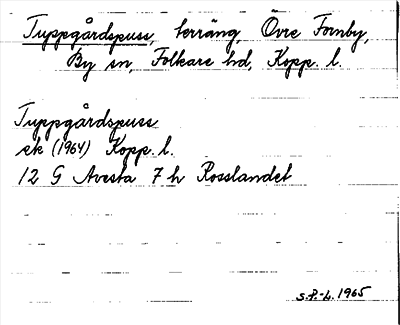 Tuppgårdspuss, terräng, Övre Fornby,
By sn, Folkare hd, Kopp. l.
Tuppgårdspuss
ek (1964) Kopp. l.
12 G Avesta 7 h Rosslandet
S.P.-L. 1965